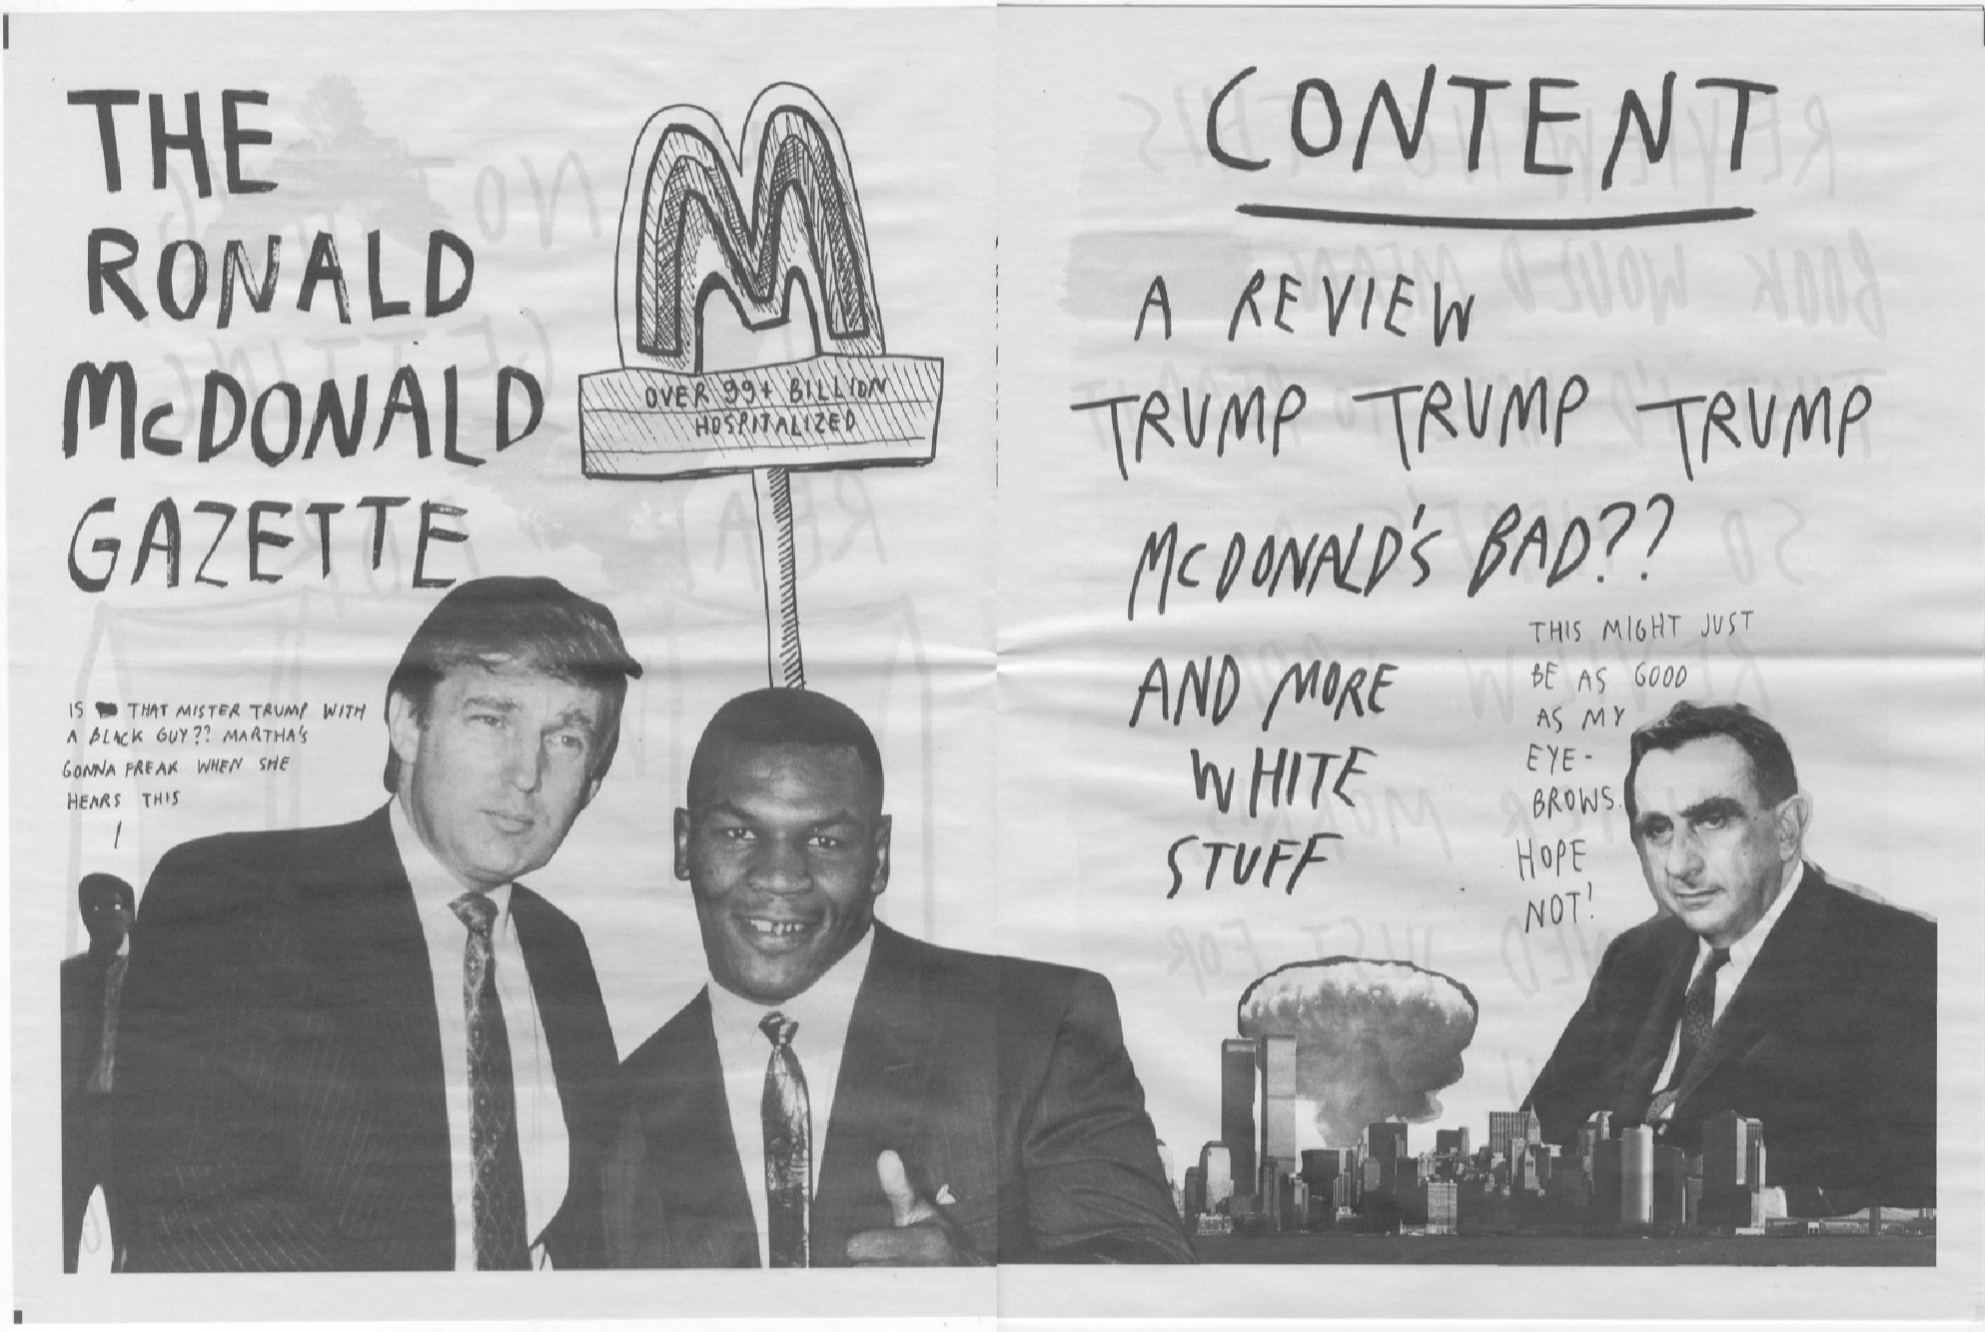 THE
RONALD
McDONALD
GAZETTE
OVER 99+ BILLION
HOSPITALIZED
IS THAT MISTER TRUMP WITH
A BLACK GUY?? MARTHA'S
GONNA FREAK WHEN SHE
HEARS THIS
CONTENT
A REVIEW
TRUMP TRUMP TRUMP
McDONALD'S BAD??
AND MORE
WHITE
STUFF
THIS MIGHT JUST
BE AS GOOD
AS MY
EYE-
BROWS.
HOPE
NOT!